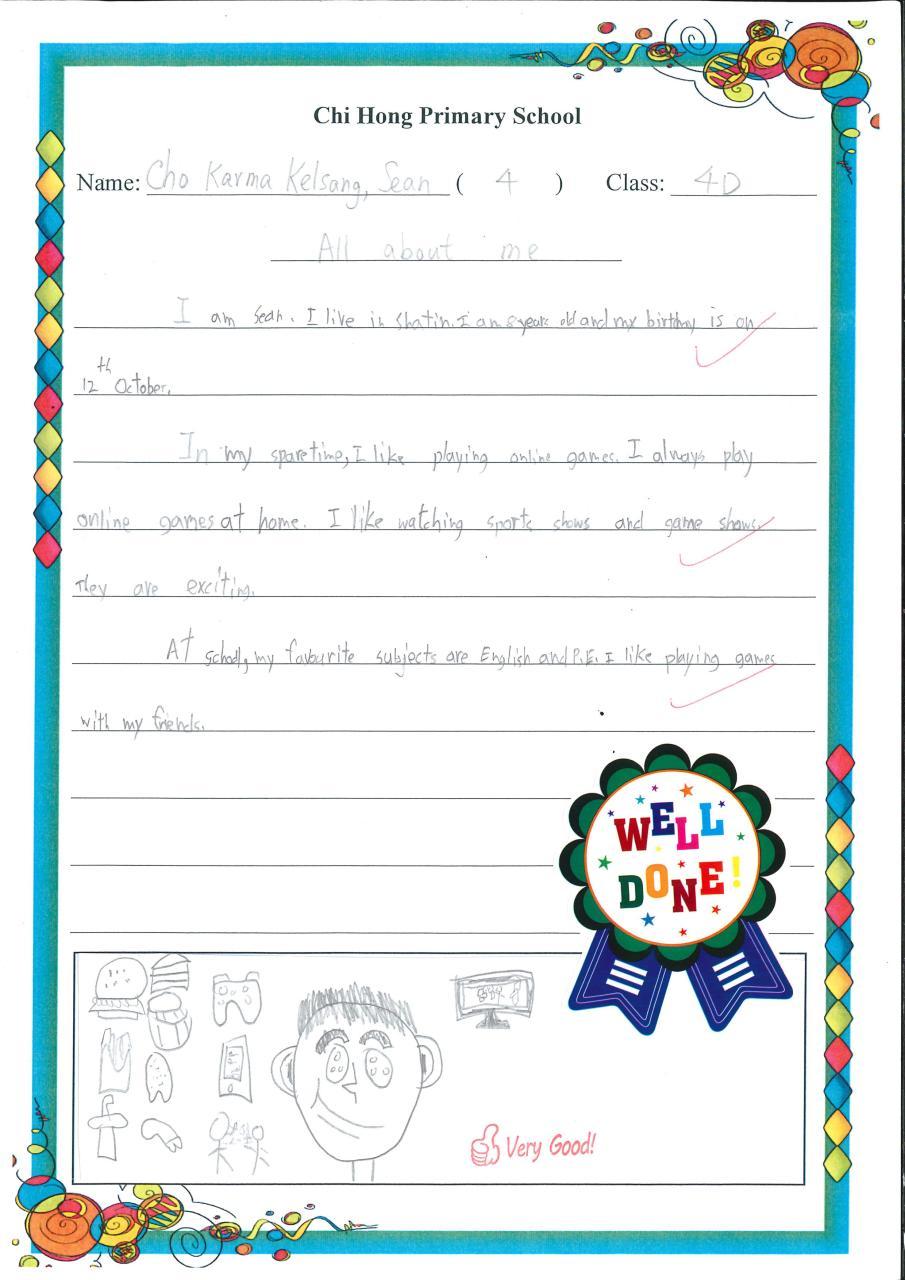 Chi Hong Primary School
Name: Cho Karma Kelsang, Sean ( 4 ) Class: 4D
All about me
I am Sean. I live in Shatin. I am 8 years old and my birthday is on
12th October.
In my sparetime, I like playing online games. I always play
online games at home. I like watching sports shows and game shows.
They are exciting.
At school, my favourite subjects are English and P.E. I like playing games
with my friends.
WELL
DONE!
Very Good!